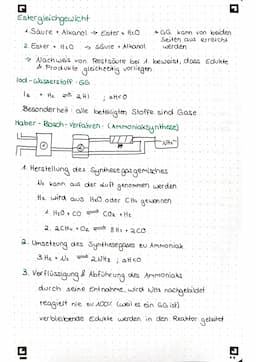 Estergleichgewicht
1. Säure + Alkanol → Ester + H₂O
→ GG kann von beiden Seiten aus erreicht werden
2. Ester + H₂O → Säure + Alkanol
→ Nachweis von Restsäure bei 1. beweist, dass Edukte & Produkte gleichzeitig vorliegen
Iod-Wasserstoff-GG
I₂ + H₂ ⇌ 2HI ; ΔH<0
Besonderheit: alle beteiligten Stoffe sind Gase
Haber-Bosch-Verfahren: (Ammoniaksynthese)
NH₃
1. Herstellung des Synthesegasgemisches
N₂ kann aus der Luft genommen werden
H₂ wird aus H₂O oder CH₄ gewonnen
1. H₂O + CO ⇌ CO₂ + H₂
2. 2CH₄ + O₂ ⇌ 4H₂ + 2CO
2. Umsetzung des Synthesegases zu Ammoniak
3H₂ + N₂ ⇌ 2NH₃ ; ΔH<0
3. Verflüssigung & Abführung des Ammoniaks
durch seine Entnahme wird NH₃ nachgebildet
reagiert nie zu 100% (weil es ein GG ist)
verbleibende Edukte werden in den Reaktor geleitet